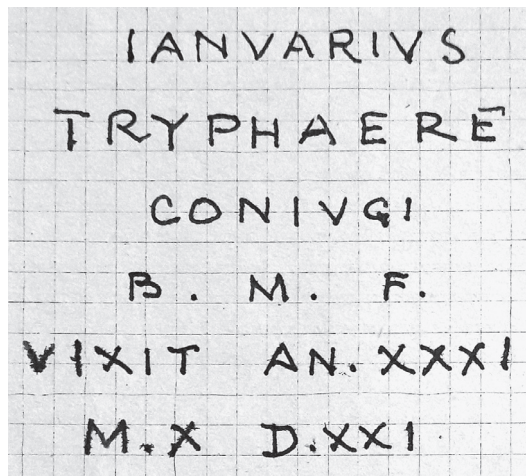 IANVARIVS
TRYPHAERE
CONIVGI
B. M. F.
VIXIT AN. XXXI
M. X D. XXI